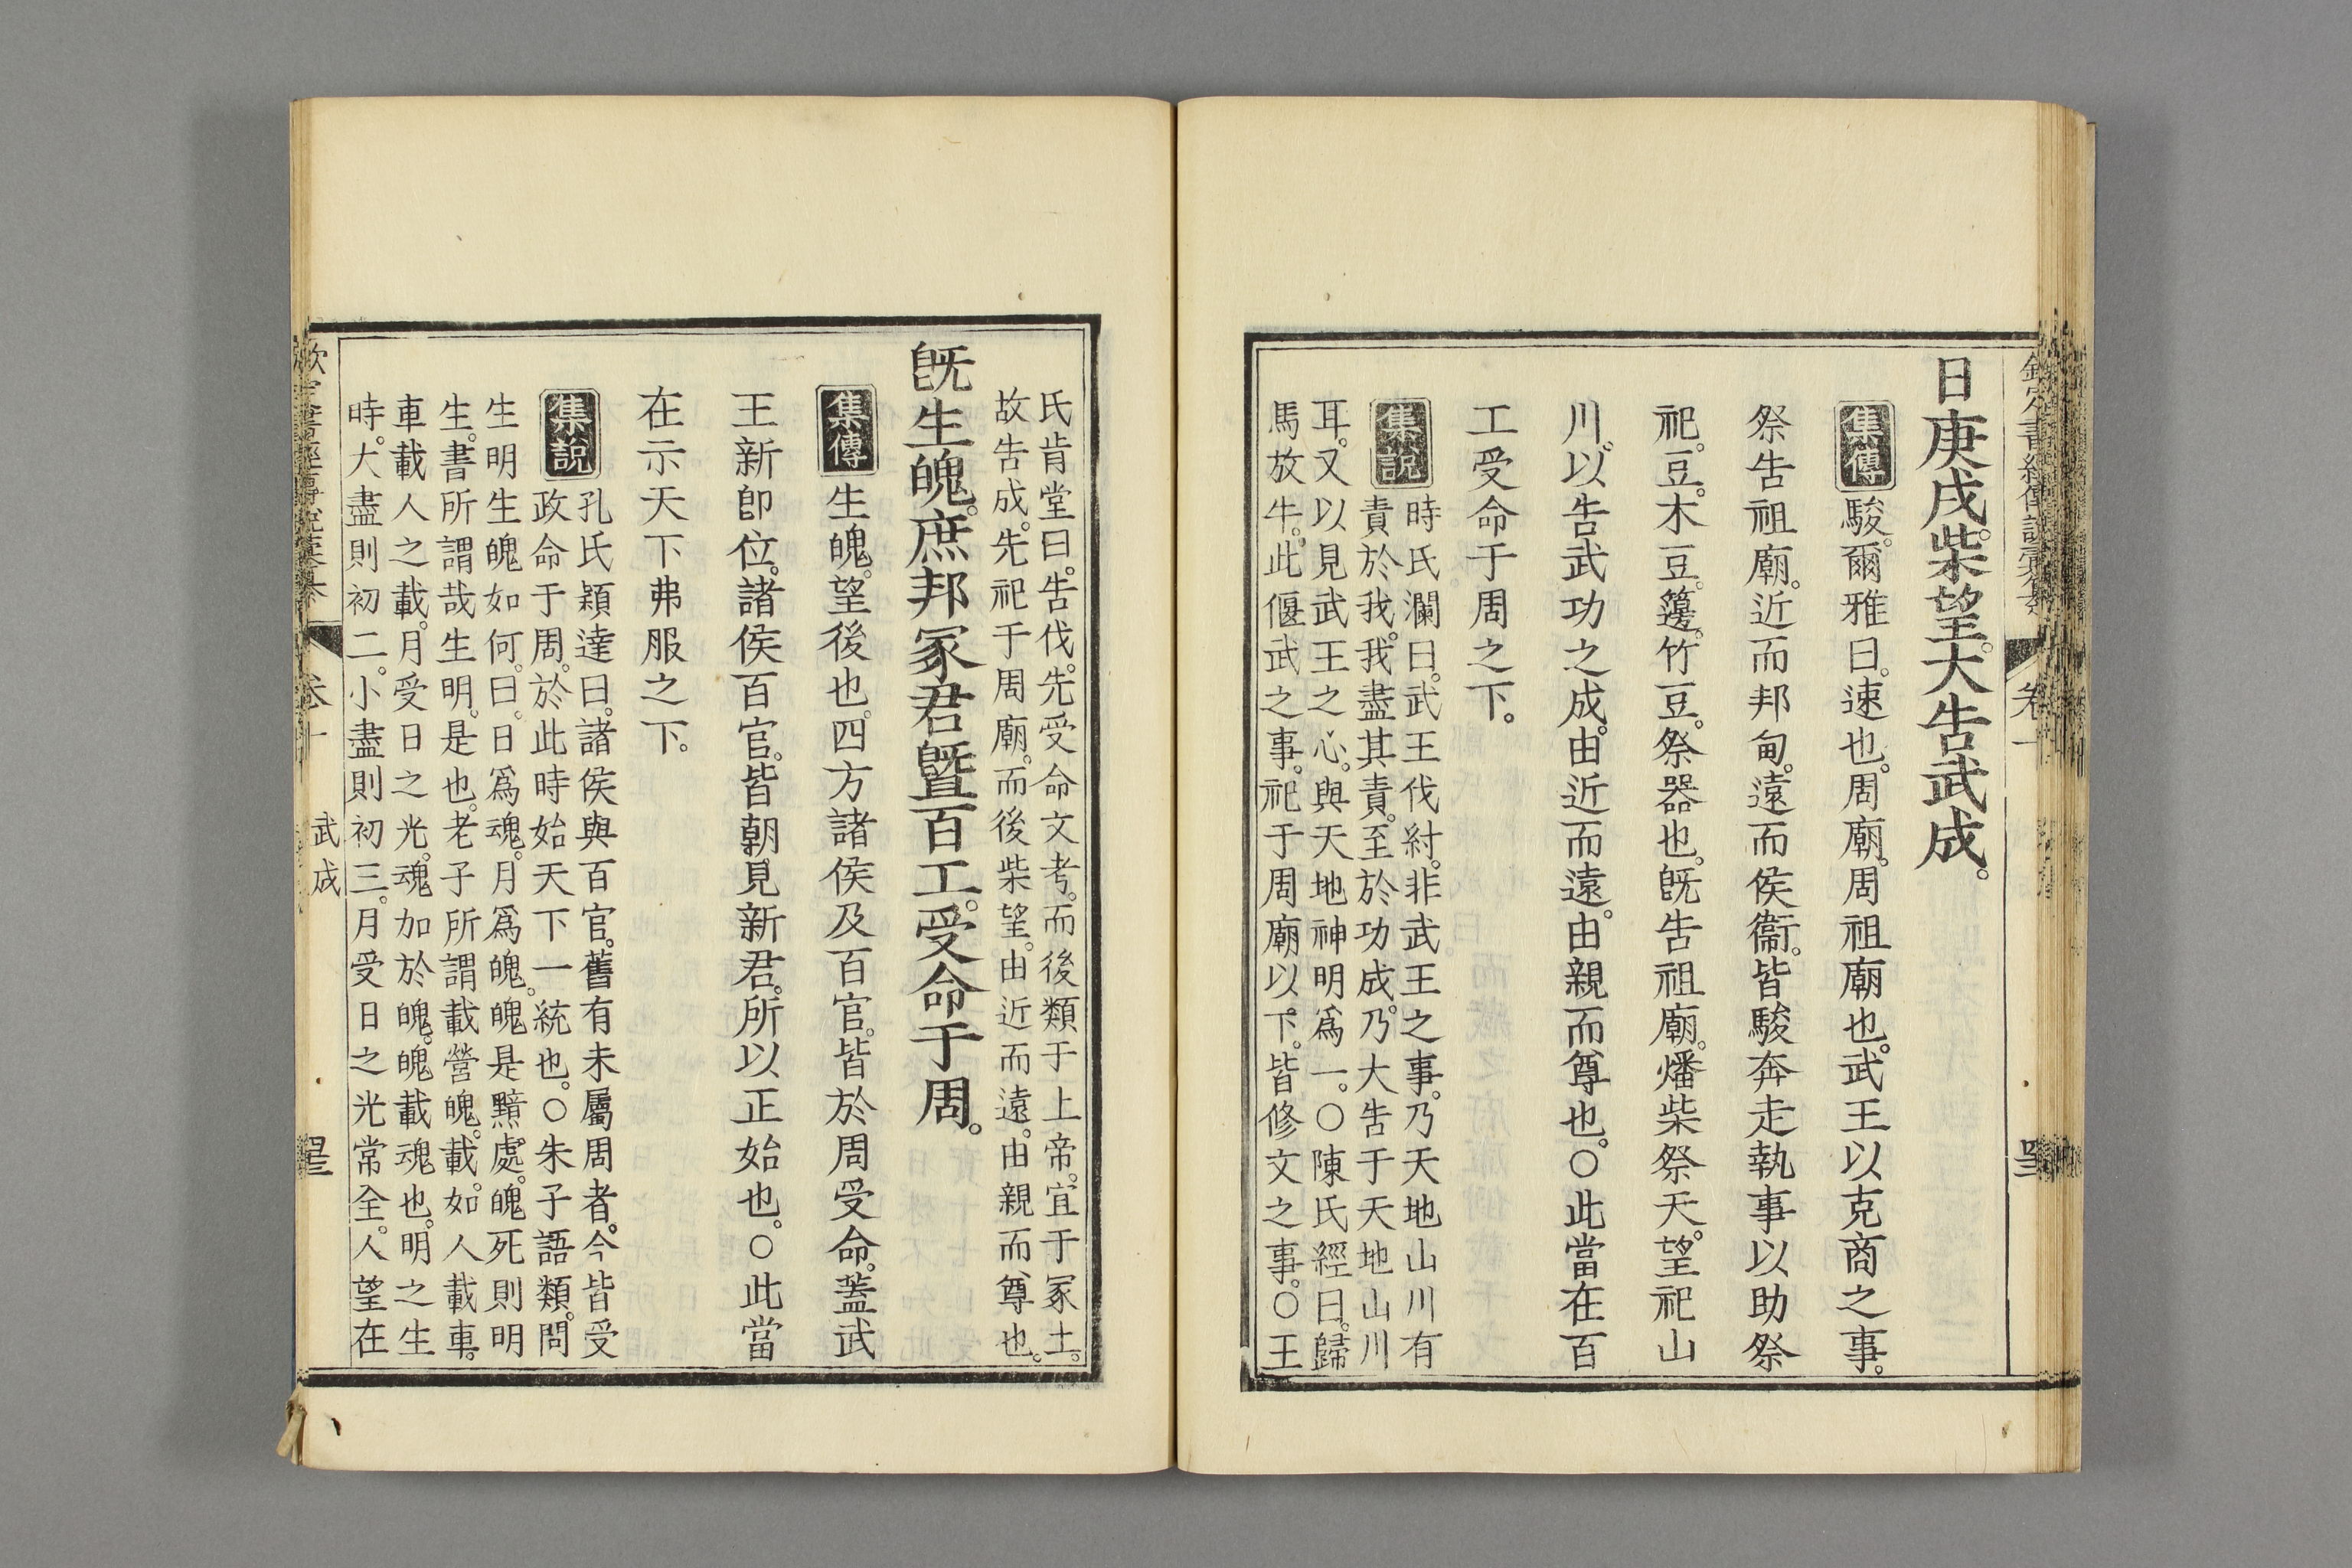 欽定書經傳說彙纂
卷十一
日庚戌柴望大告武成。
集傳
駿。爾雅曰。速也。周廟。周祖廟也。武王以克商之事。
祭告祖廟。近而邦甸。遠而侯衞。皆駿奔走執事以助祭
祀。豆。木豆。籩。竹豆。祭器也。旣告祖廟。燔柴祭天。望祀山
川。以告武功之成。由近而遠。由親而尊也。○此當在百
工受命于周之下。
集說
時氏瀾曰。武王伐紂。非武王之事。乃天地山川有
責於我。我盡其責。至於功成。乃大告于天地山川
耳。又以見武王之心。與天地神明爲一。○陳氏經曰。歸
馬放牛。此偃武之事。祀于周廟以下。皆修文之事。○王
氏肯堂曰。告伐。先受命文考。而後類于上帝。宜于冢土。
故告成。先祀于周廟。而後柴望。由近而遠。由親而尊也。
旣生魄。庶邦冢君曁百工。受命于周。
集傳
生魄。望後也。四方諸侯及百官。皆於周受命。蓋武
王新卽位。諸侯百官。皆朝見新君。所以正始也。○此當
在示天下弗服之下。
集說
孔氏穎達曰。諸侯與百官。舊有未屬周者。今皆受
政命于周。於此時始天下一統也。○朱子語類。問
生明生魄如何。曰。日爲魂。月爲魄。魄是黯處。魄死則明
生。書所謂哉生明。是也。老子所謂載營魄。載。如人載車。
車載人之載。月受日之光。魂加於魄。魄載魂也。明之生
時。大盡則初二。小盡則初三。月受日之光常全。人望在
武成